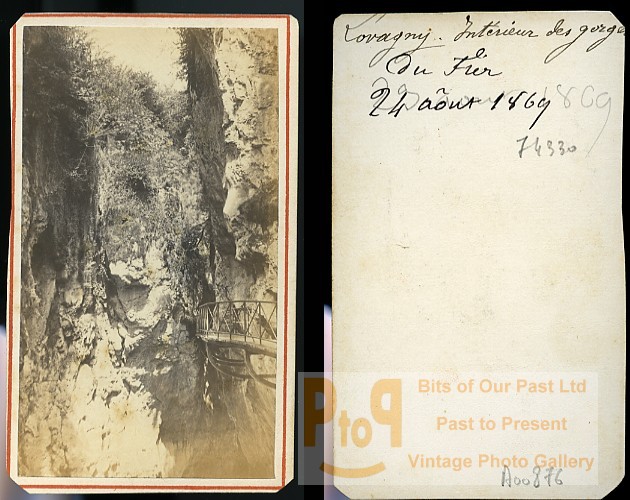 Lovagny. Intérieur des gorges
du Fier
24 août 1869
1869
74330
PtoP
Bits of Our Past Ltd
Past to Present
Vintage Photo Gallery
A00876